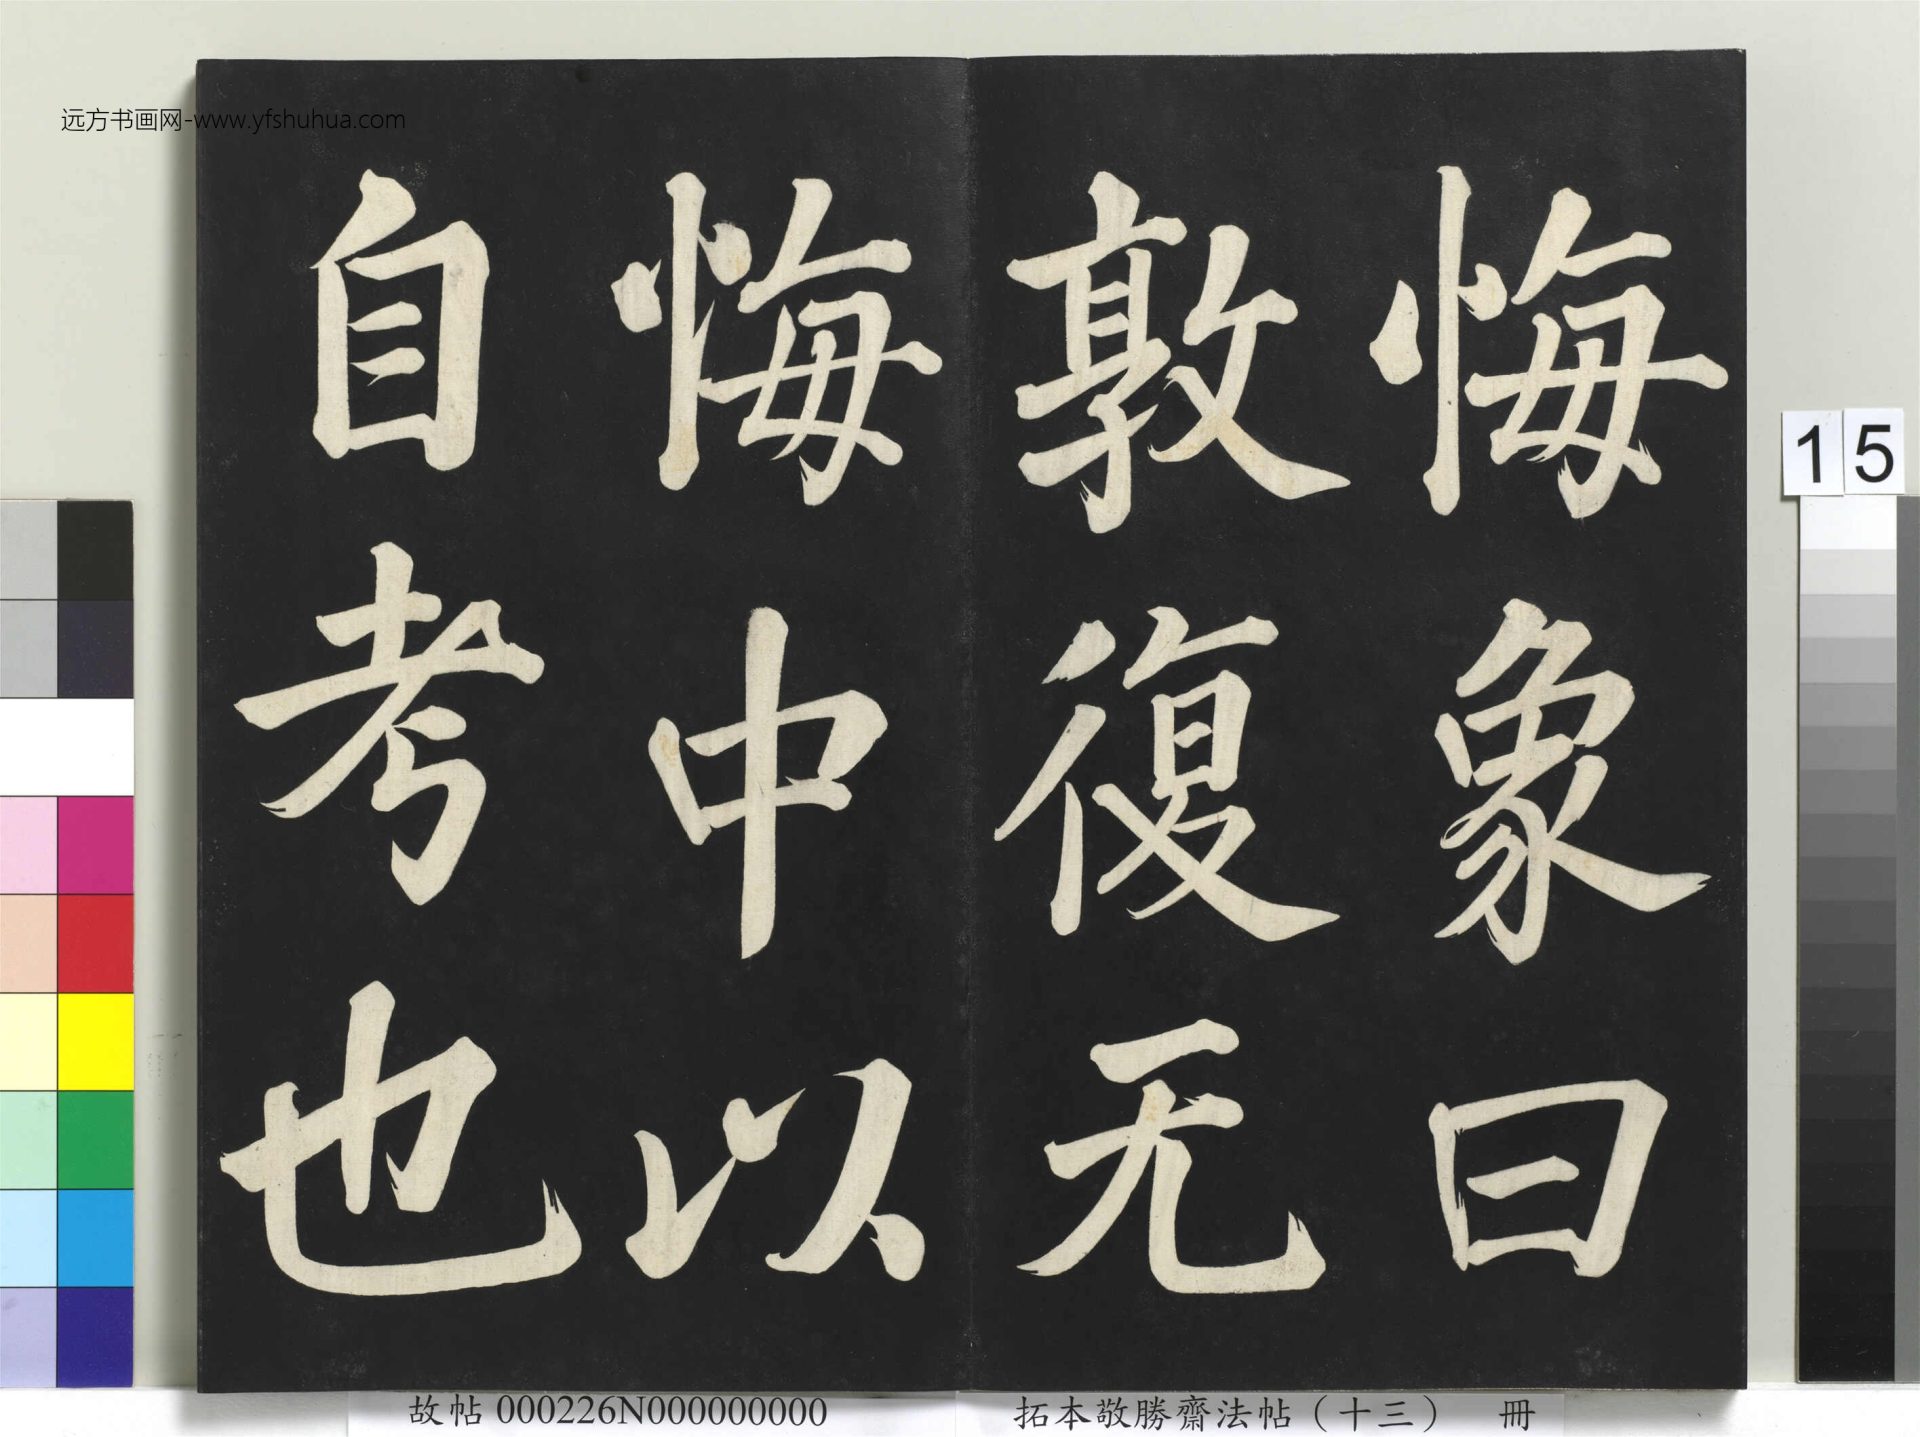 远方书画网-www.yfshuhua.com
悔象曰
敦復无
悔中以
自考也
15
故帖 000226N000000000
拓本敬勝齋法帖（十三） 冊